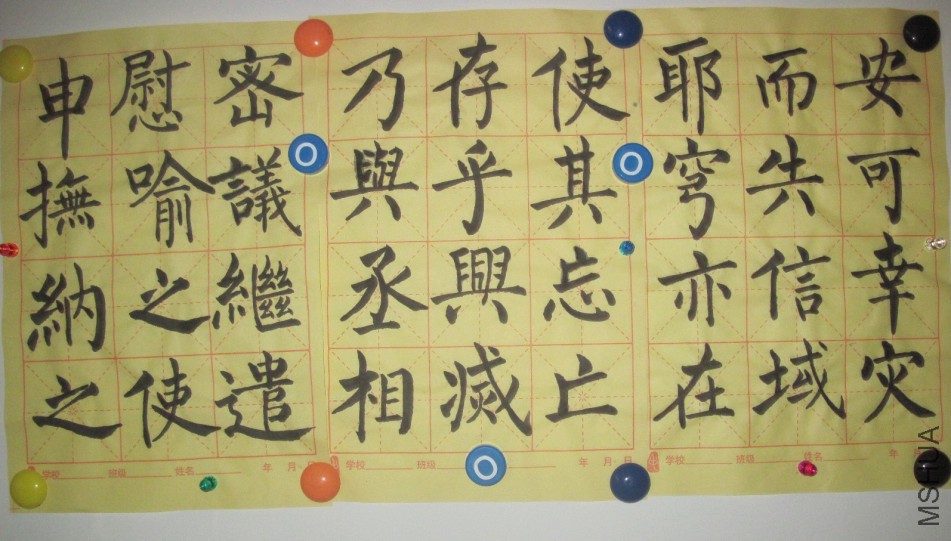 安可幸灾
而失信域
耶穹亦在
使其忘亡
存乎興滅
乃與丞相
密議繼遣
慰喻之使
申撫納之
学校 班级 姓名 年 月
学校 班级 年 月 日
学校 班级 姓名 年
MSHUA